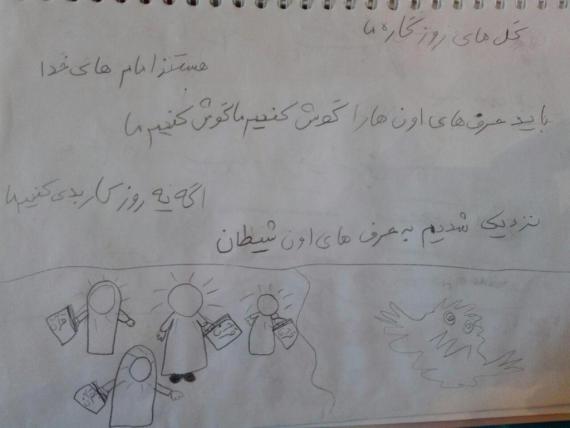 گل های روزگاره ما
هستند امام های خدا
باید حرف های اون ها را گوش کنیم ما گوش کنیم ما
اگه یه روز کار بدی کنیم ما
نزدیک شدیم به حرف های اون شیطان